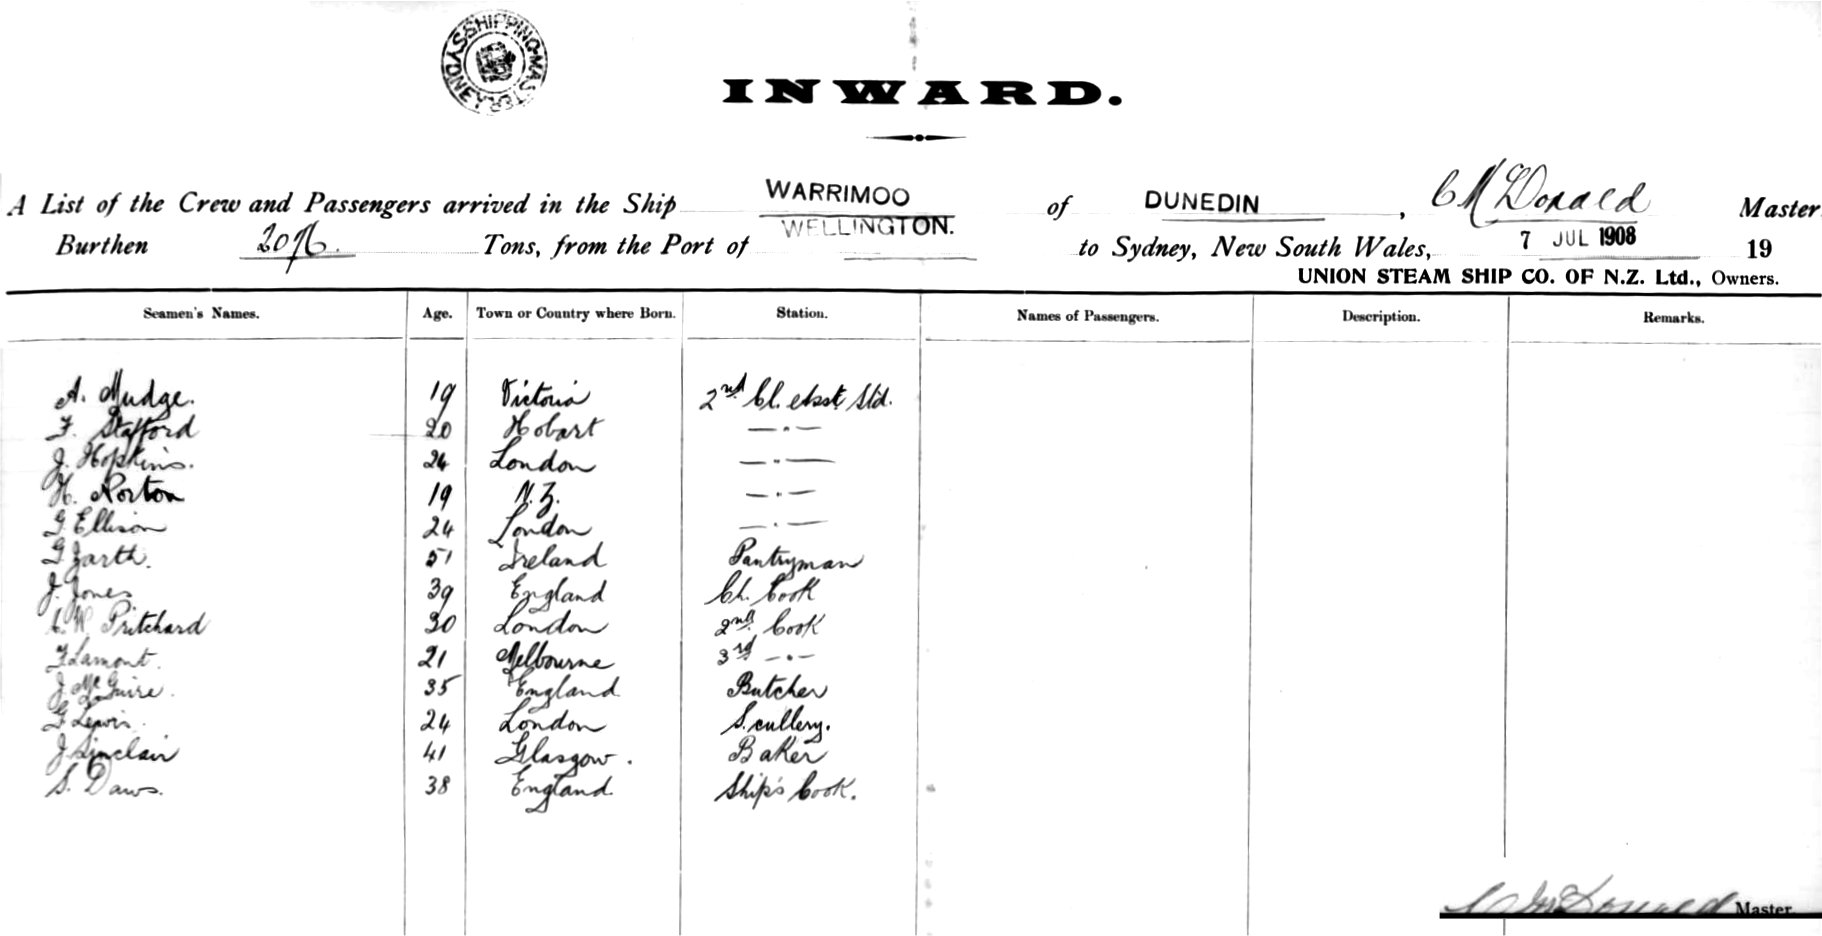 SHIPPING MASTER SYDNEY
INWARD.
A List of the Crew and Passengers arrived in the Ship WARRIMOO of DUNEDIN, C McDonald Master
Burthen 2076 Tons, from the Port of WELLINGTON. to Sydney, New South Wales, 7 JUL 1908 19
UNION STEAM SHIP CO. OF N.Z. Ltd., Owners.
Seamen's Names. Age. Town or Country where Born. Station. Names of Passengers. Description. Remarks.
A. Mudge. 19 Victoria 2nd Cl. Asst. Std.
F. Stafford 20 Hobart — . —
J. Hopkins. 24 London — . —
H. Norton 19 N.Z. — . —
G Ellison 24 London — . —
G Garth. 51 Ireland Pantryman
J. Jones 39 England Ch. Cook
W Pritchard 30 London 2nd Cook
F Lamont. 21 Melbourne 3rd — . —
J McGuire. 35 England Butcher
G Lewis. 24 London Scullery.
J Sinclair 41 Glasgow. Baker
S. Daws. 38 England Ship's Cook.
C McDonald Master.